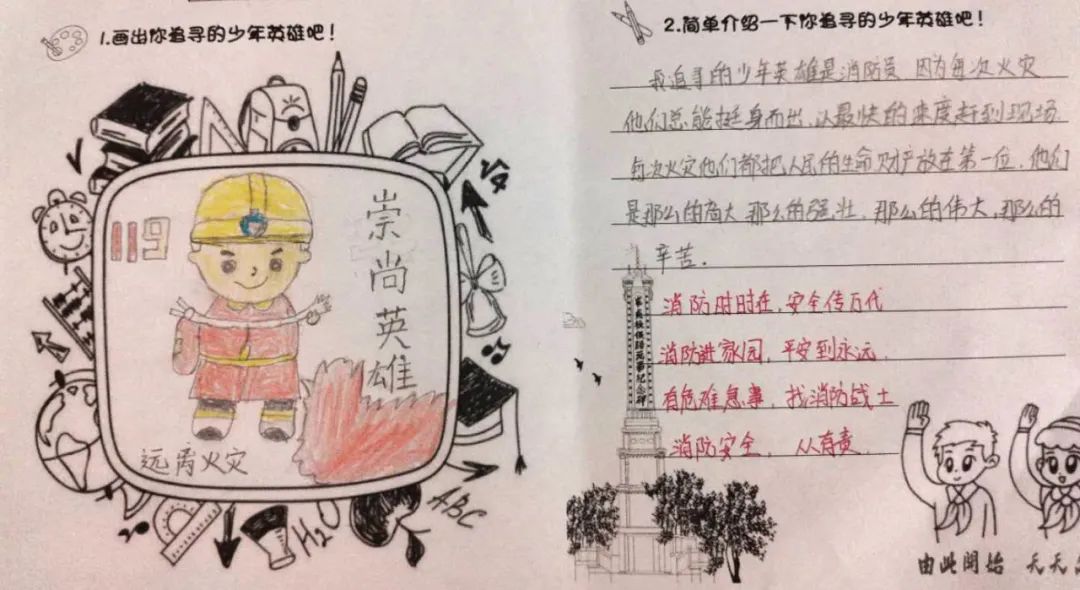 1.画出你追寻的少年英雄吧！
119
崇尚英雄
远离火灾
√4
ABC
H2O
2.简单介绍一下你追寻的少年英雄吧！
我追寻的少年英雄是消防员 因为每次火灾
他们总能挺身而出,以最快的速度赶到现场
每次火灾他们都把人民的生命财产放在第一位.他们
是那么的高大 那么的强壮,那么的伟大,那么的
辛苦.
消防时时在,安全传万代
消防进家园,平安到永远.
有危难急事,找消防战士
消防安全, 从有责.
纪念碑
由此開始 天天